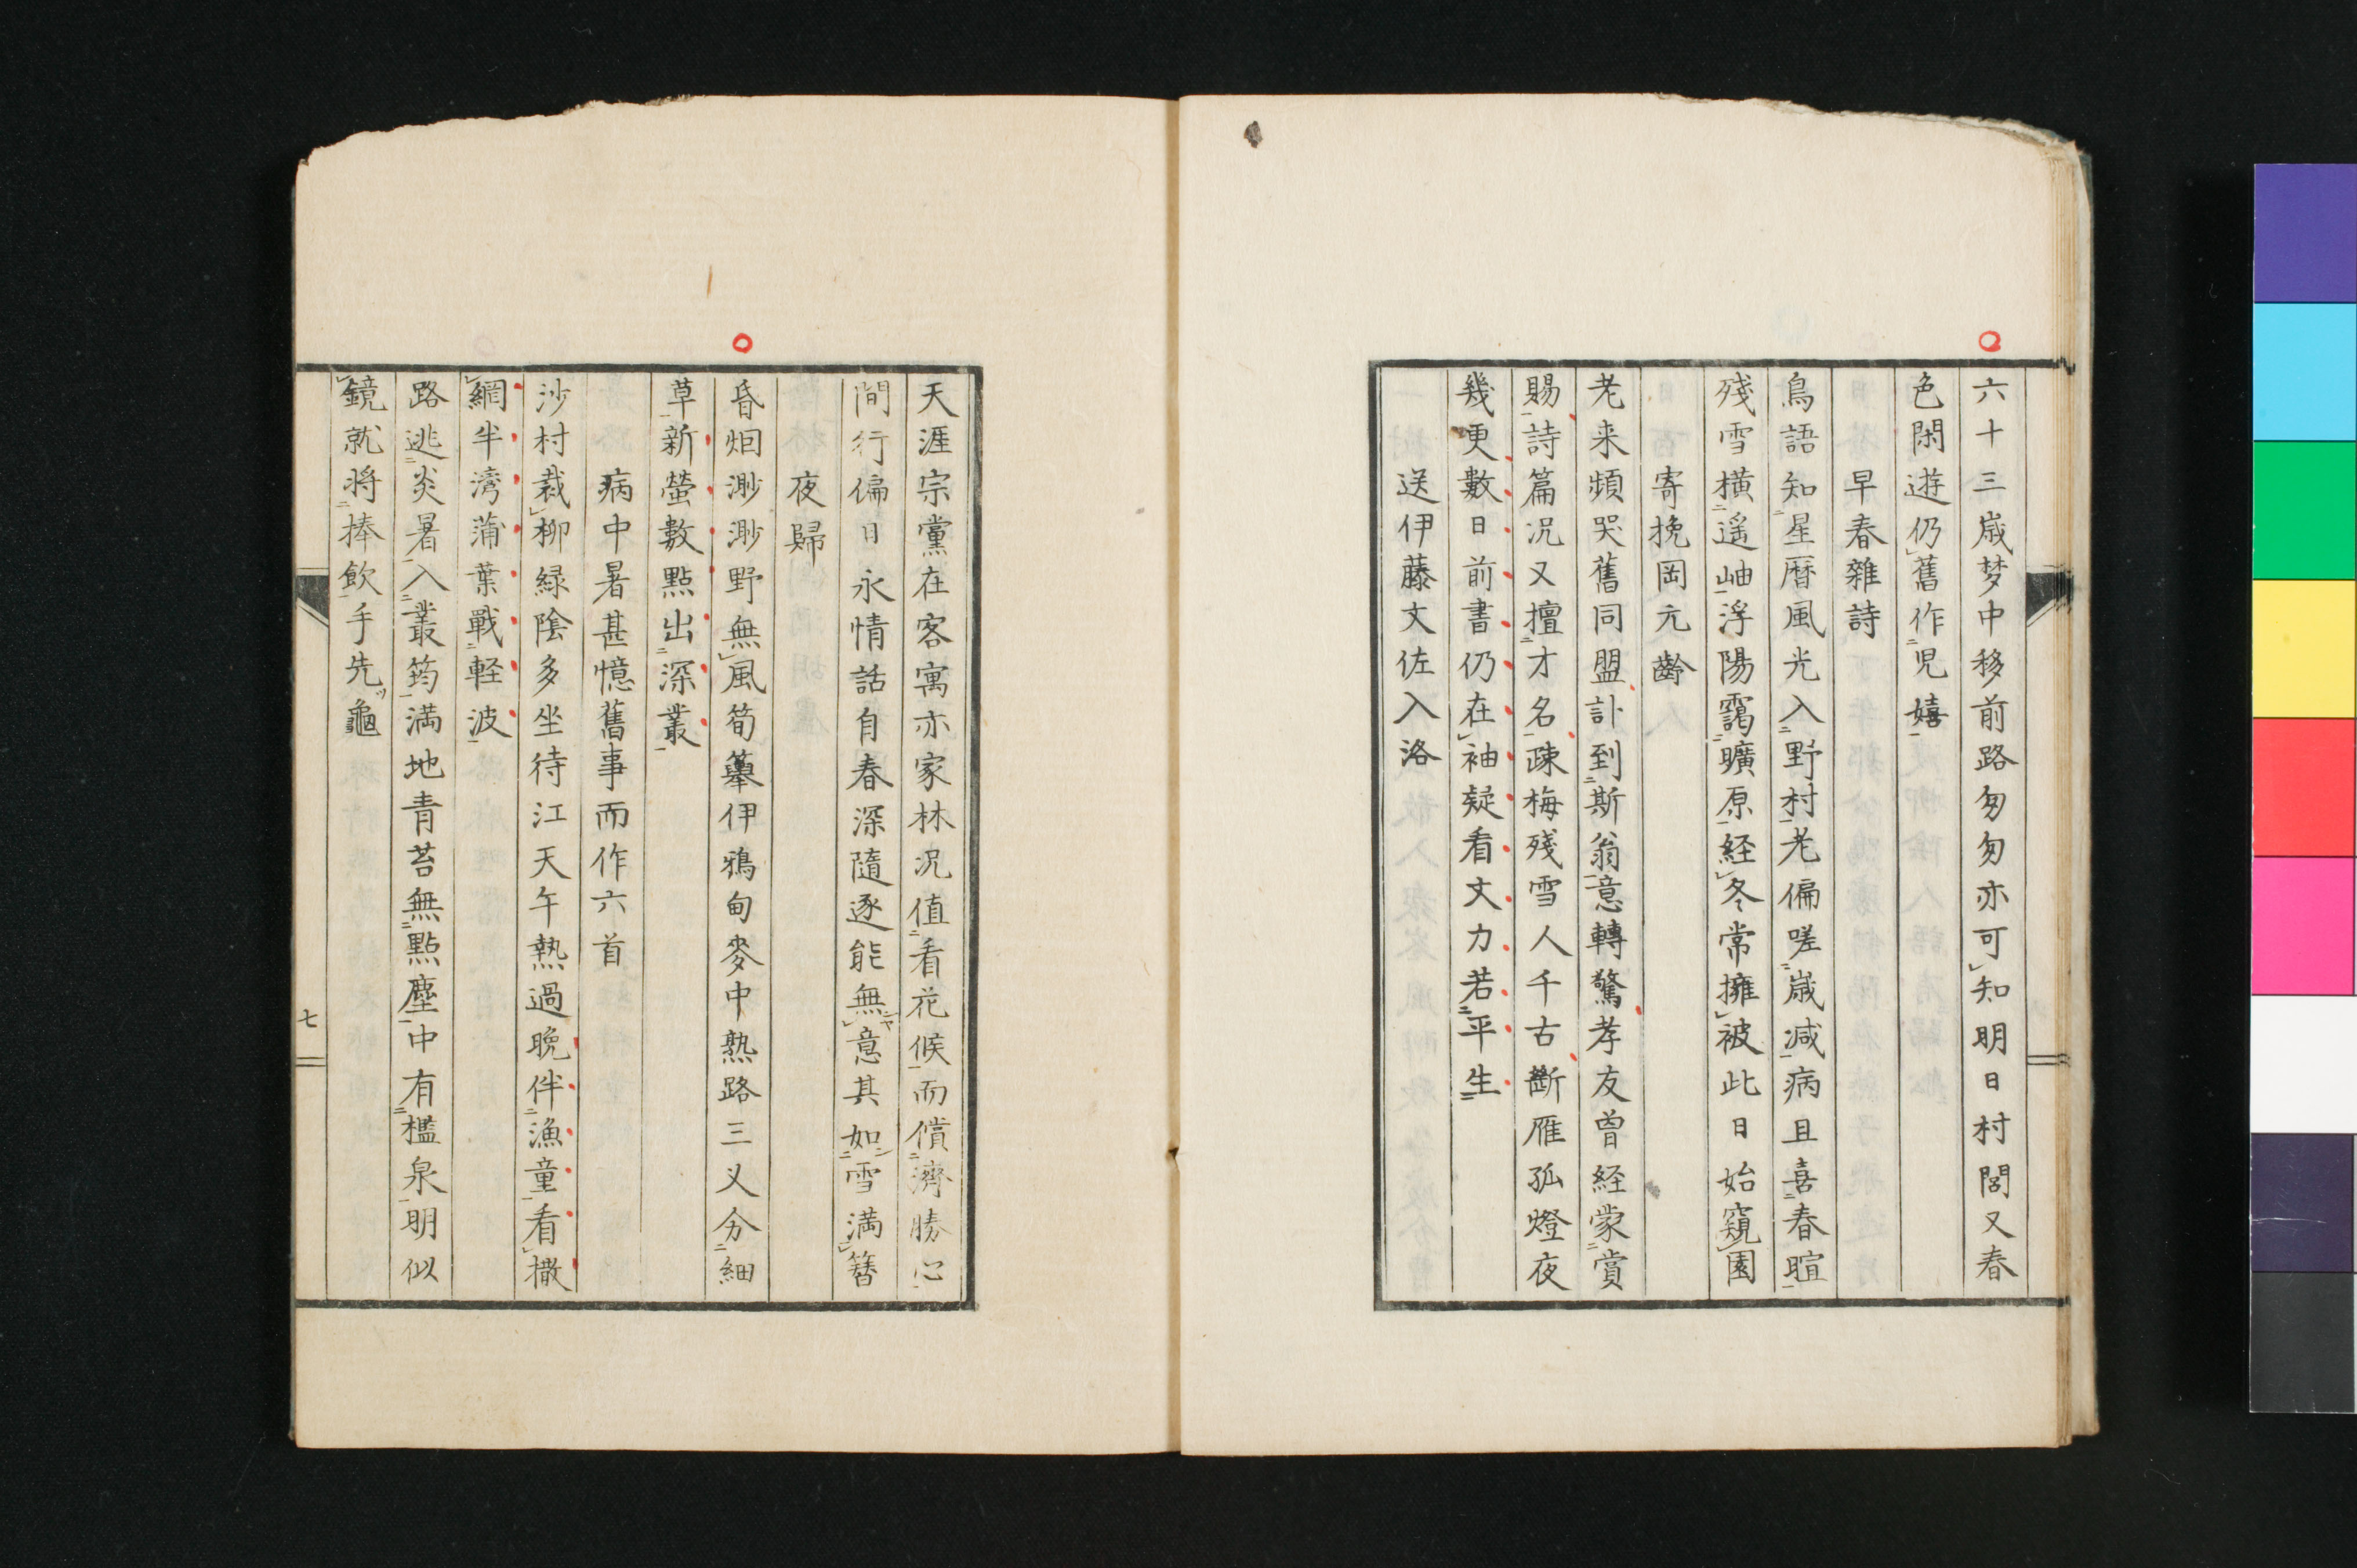 六十三歳梦中移前路匆匆亦可知明日村閭又春
色閑遊仍舊作児嬉
早春雜詩
鳥語知星暦風光入野村老偏嗟歳减病且喜春暄
殘雪橫遥岫浮陽靄曠原経冬常擁被此日始窺園
寄挽岡元齡
老来頻哭舊同盟訃到斯翁意轉驚孝友曽経蒙賞
賜詩篇况又擅才名疎梅残雪人千古斷雁孤燈夜
幾更數日前書仍在袖疑看文力若平生
送伊藤文佐入洛
天涯宗黨在客寓亦家林况值看花候而償濟勝心
間行偏日永情話自春深隨逐能無意其如雪満簪
夜歸
昏烟渺渺野無風筍轝伊鴉甸麥中熟路三乂分細
草新螢數點出深叢
病中暑甚憶舊事而作六首
沙村裁柳緑陰多坐待江天午熱過晩伴漁童看撒
網半湾蒲葉戰軽波
路逃炎暑入叢筠満地青苔無點塵中有檻泉明似
鏡就将捧飲手先龜
七